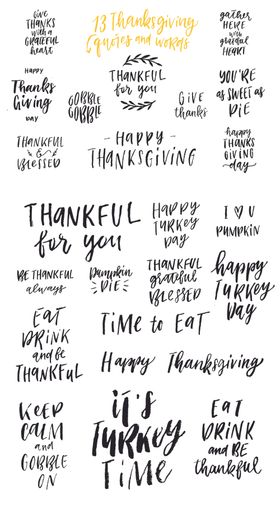 GIVE
THANKS
with a
GRATEFUL
heart
13 Thanksgiving
Quotes and words
gather
HERE
with
grateful
HEART
HAPPY
Thanks
Giving
DAY
GOBBLE
GOBBLE
THANKFUL
for you
GIVE
thanks
YOU'RE
AS SWEET
as
PIE
THANKFUL
&
BLESSED
- HAPPY -
THANKSGIVING
happy
THANKS
GIVING
day
THANKFUL
for you
HAPPY
TURKEY
DAY
I ♥ U
PUMPKIN
BE THANKFUL
always
Pumpkin
PIE
THANKFUL
grateful
BLESSED
happy
TURKEY
DAY
EAT
DRINK
and be
THANKFUL
TIME to EAT
Happy Thanksgiving
KEEP
CALM
and
GOBBLE
ON
it's
TURKEY
TIME
EAT
DRINK
and BE
thankful